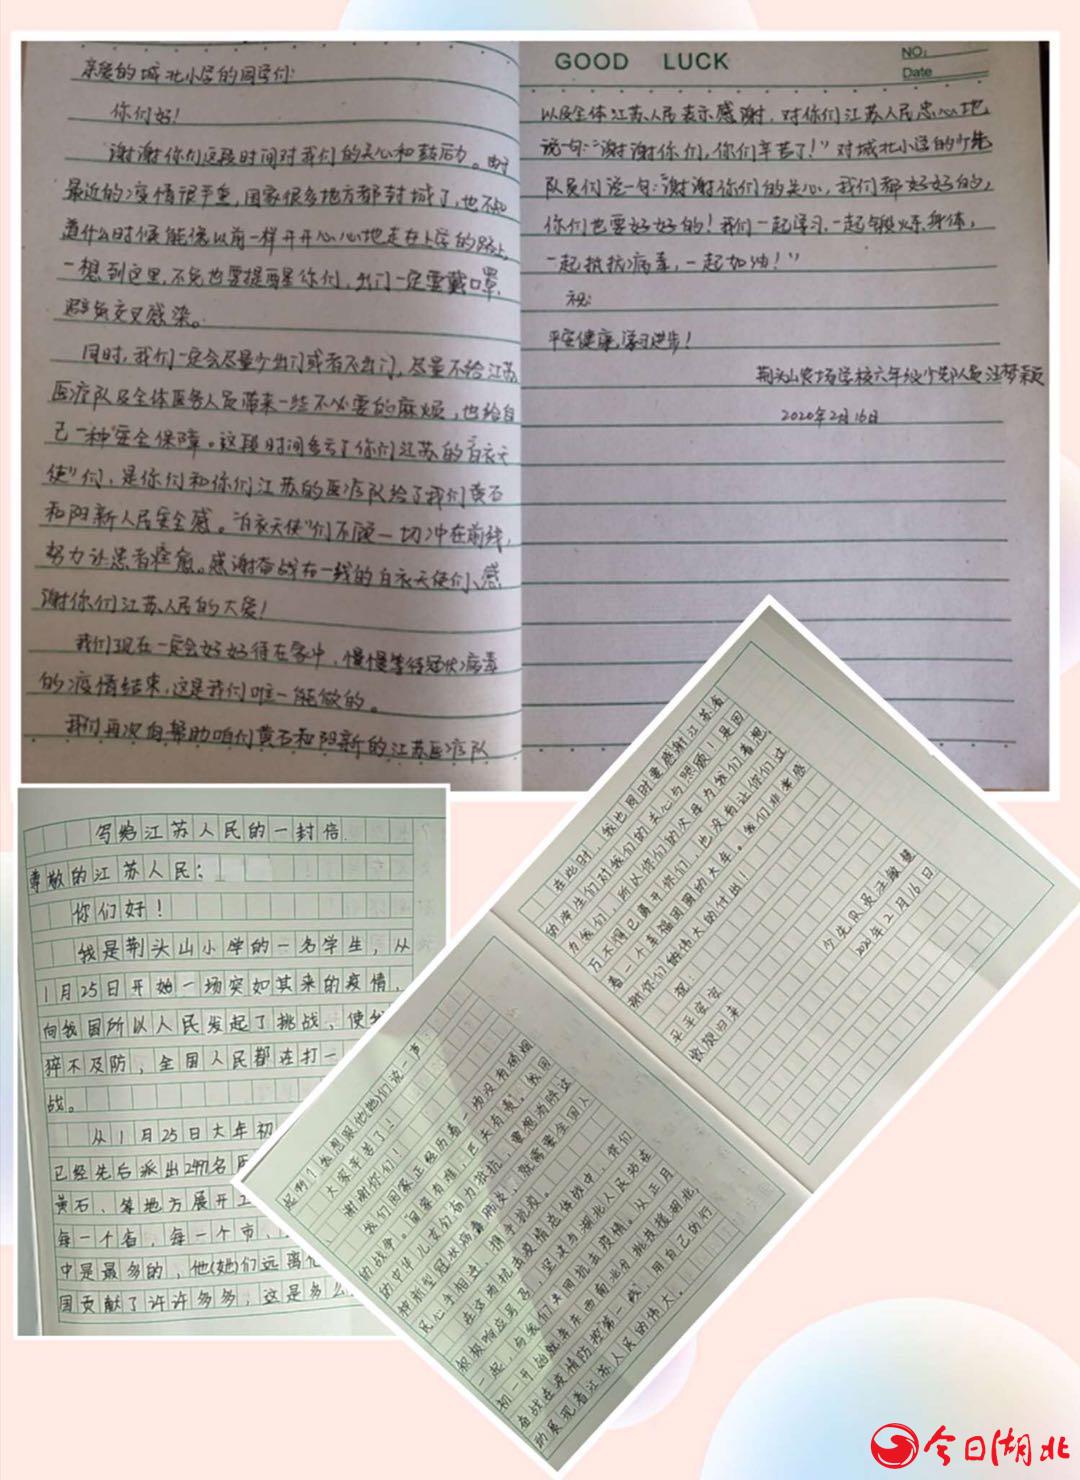 亲爱的城北小学的同学们:
你们好!
谢谢你们这段时间对我们的关心和鼓励。由于
最近的疫情很严重,国家很多地方都封城了,也不知
道什么时候能像以前一样开开心心地走在上学的路上,
一想到这里,不免也要提醒你们,出门一定要戴口罩,
避免交叉感染。
同时,我们一定会尽量少出门或者不出门,尽量不给江苏
医疗队及全体医务人员带来一些不必要的麻烦,也给自
己一种安全保障。这段时间多亏了你们江苏的“白衣天
使”们,是你们和你们江苏的医疗队给了我们黄石
和阳新人民安全感。“白衣天使”们不顾一切冲在前线,
努力让患者痊愈。感谢奋战在一线的白衣天使们、感
谢你们江苏人民的大爱!
我们现在一定会好好待在家中,慢慢等待冠状病毒
的疫情结束,这是我们唯一能做的。
我们再次向帮助咱们黄石和阳新的江苏医疗队
GOOD LUCK
NO:
Date
以及全体江苏人民表示感谢,对你们江苏人民忠心地
说一句:“谢谢你们,你们辛苦了!”对城北小学的少先
队员们说一句:“谢谢你们的关心,我们都好好的,
你们也要好好的!我们一起学习,一起锻炼身体,
一起抵抗病毒,一起加油!”
祝:
平安健康,学习进步!
荆头山农场学校六年级少先队员汪梦颖
2020年2月16日
写给江苏人民的一封信
尊敬的江苏人民:
你们好!
我是荆头山小学的一名学生,从
1月25日开始一场突如其来的疫情,
向我国所以人民发起了挑战,使我
猝不及防,全国人民都在打一
战。
从1月25日大年初
已经先后派出2497名医
黄石、等地方展开工
每一个省,每一个市、
中是最多的,他(她)们远离
国贡献了许许多多,这是多么
起啊!我想跟他(她)们说一声
大家辛苦了!
谢谢你们!
我们国家正经历着一场没有硝烟
的战争。国家有难,匹夫有责。我国
的中华儿女们奋力抵抗,重想为阵这
种新型冠状病毒肺炎,就需要全国人
民心手相连,携手抗疫。
在这场抗击疫情总体战中,你们
积极响应号召,坚决与湖北人民站在
一起,与我们共同抗击疫情。从正月
初一开始就奔东西南北分批救援湖北
奋战在疫情防控第一线,用自己的行
动展现着江苏人民的伟大。
在此时,我也同时要感谢江苏省
的学生们对我们的关心与照顾!是因
为我们,所以你们的父母为我们着想
万不得已离开你们,也没有让你们过
着一个幸福团圆的大年。我们非常感
谢你们的伟大的付出!
祝:
平平安安
凯旋归来
少先队员汪敏慧
2020年2月16日
今日湖北